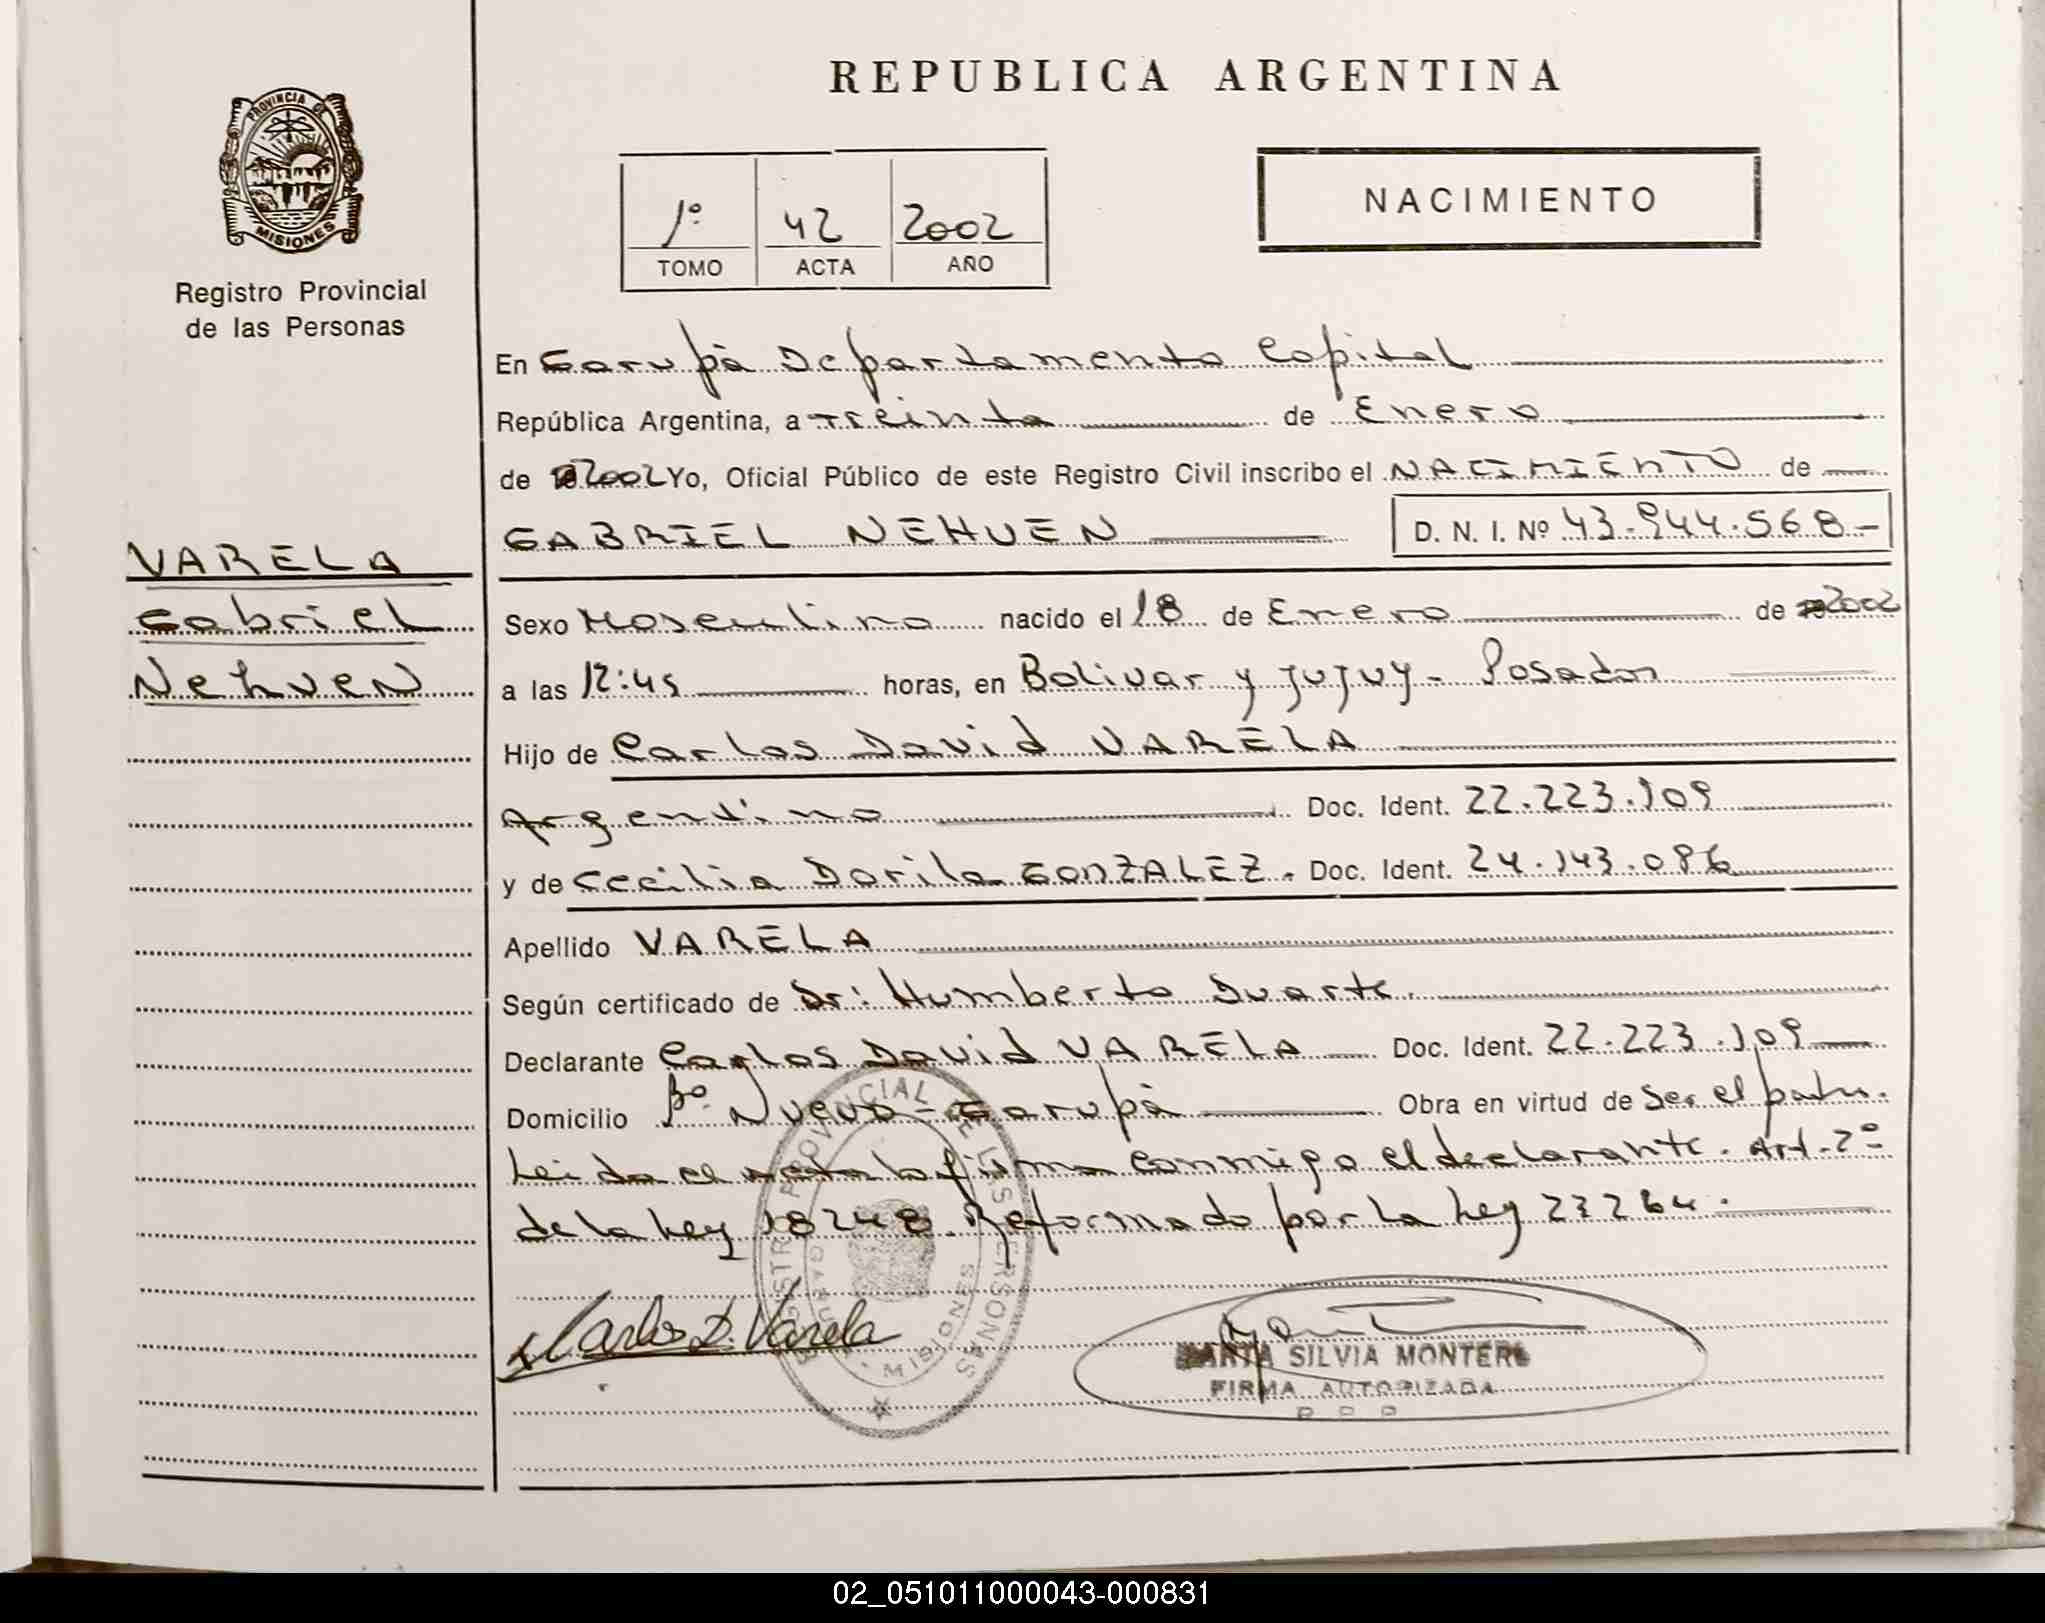 REPUBLICA ARGENTINA
PROVINCIA DE
MISIONES
Registro Provincial
de las Personas
1º 42 2002
TOMO ACTA AÑO
NACIMIENTO
En Garupá Departamento Capital
República Argentina, a treinta de Enero
de 2002 Yo, Oficial Público de este Registro Civil inscribo el NACIMIENTO de
GABRIEL NEHUEN D. N. I. Nº 43.944.568-
VARELA
Gabriel
Nehuen
Sexo Masculino nacido el 18 de Enero de 2002
a las 12:45 horas, en Bolivar y Jujuy - Posadas
Hijo de Carlos David VARELA
Argentino Doc. Ident. 22.223.109
y de Cecilia Dorila GONZALEZ. Doc. Ident. 24.143.086
Apellido VARELA
Según certificado de Dr: Humberto Duarte.
Declarante Carlos David VARELA Doc. Ident. 22.223.109
Domicilio Bº. Nuevo - Garupá Obra en virtud de Ser el padre.
Leida el acta la firma conmigo el declarante. Art. 2º
de la Ley 18248. Reformado por la Ley 23264.
Carlos D. Varela
REGISTRO PROVINCIAL DE LAS PERSONAS
GARUPA
MISIONES
MARTA SILVIA MONTERO
FIRMA AUTORIZADA
02_051011000043-000831